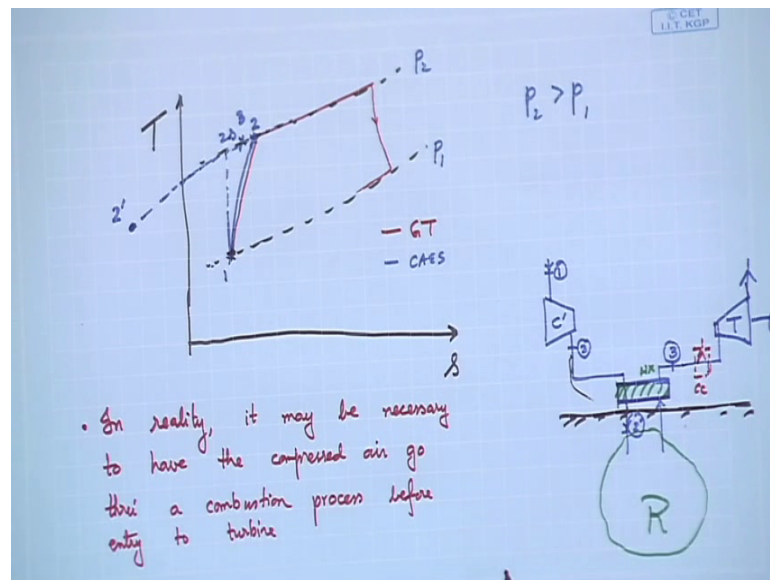 © CET
I.I.T. KGP
P₂
P₂ > P₁
T
2s 3 2
P₁
2'
GT
CAES
1
s
①
C'
T
②
③
HX
CC
②
R
• In reality, it may be necessary
to have the compressed air go
thru' a combustion process before
entry to turbine